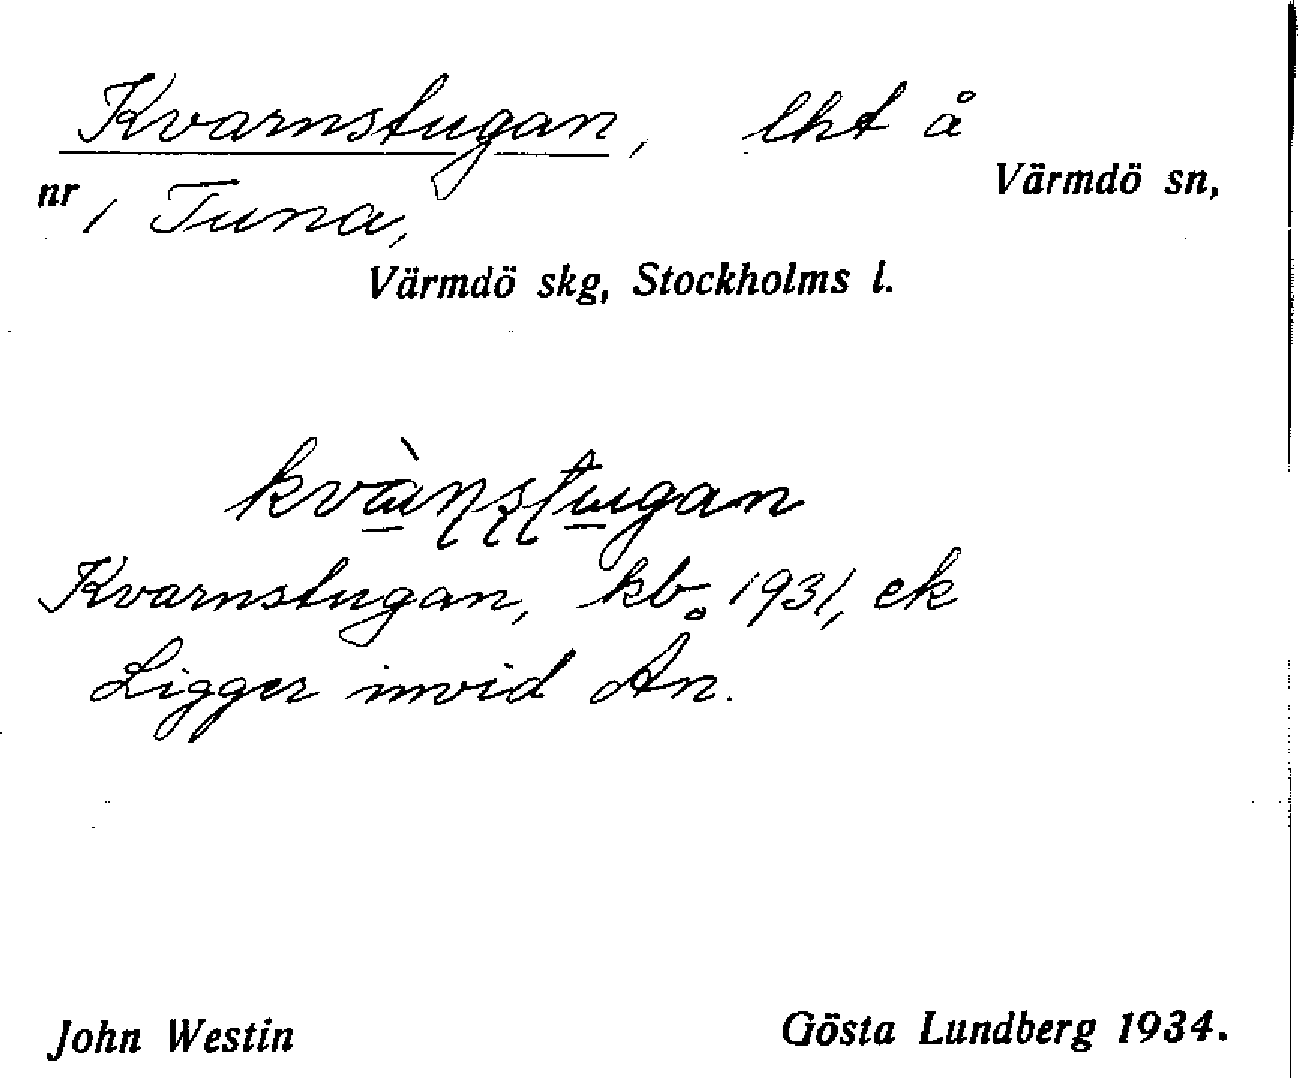 Kvarnstugan, lht å
Värmdö sn,
nr 1 Tuna,
Värmdö skg, Stockholms l.
kvàṇṣṭugan
Kvarnstugan, kb. 1931, ek
Ligger invid Ån.
John Westin Gösta Lundberg 1934.